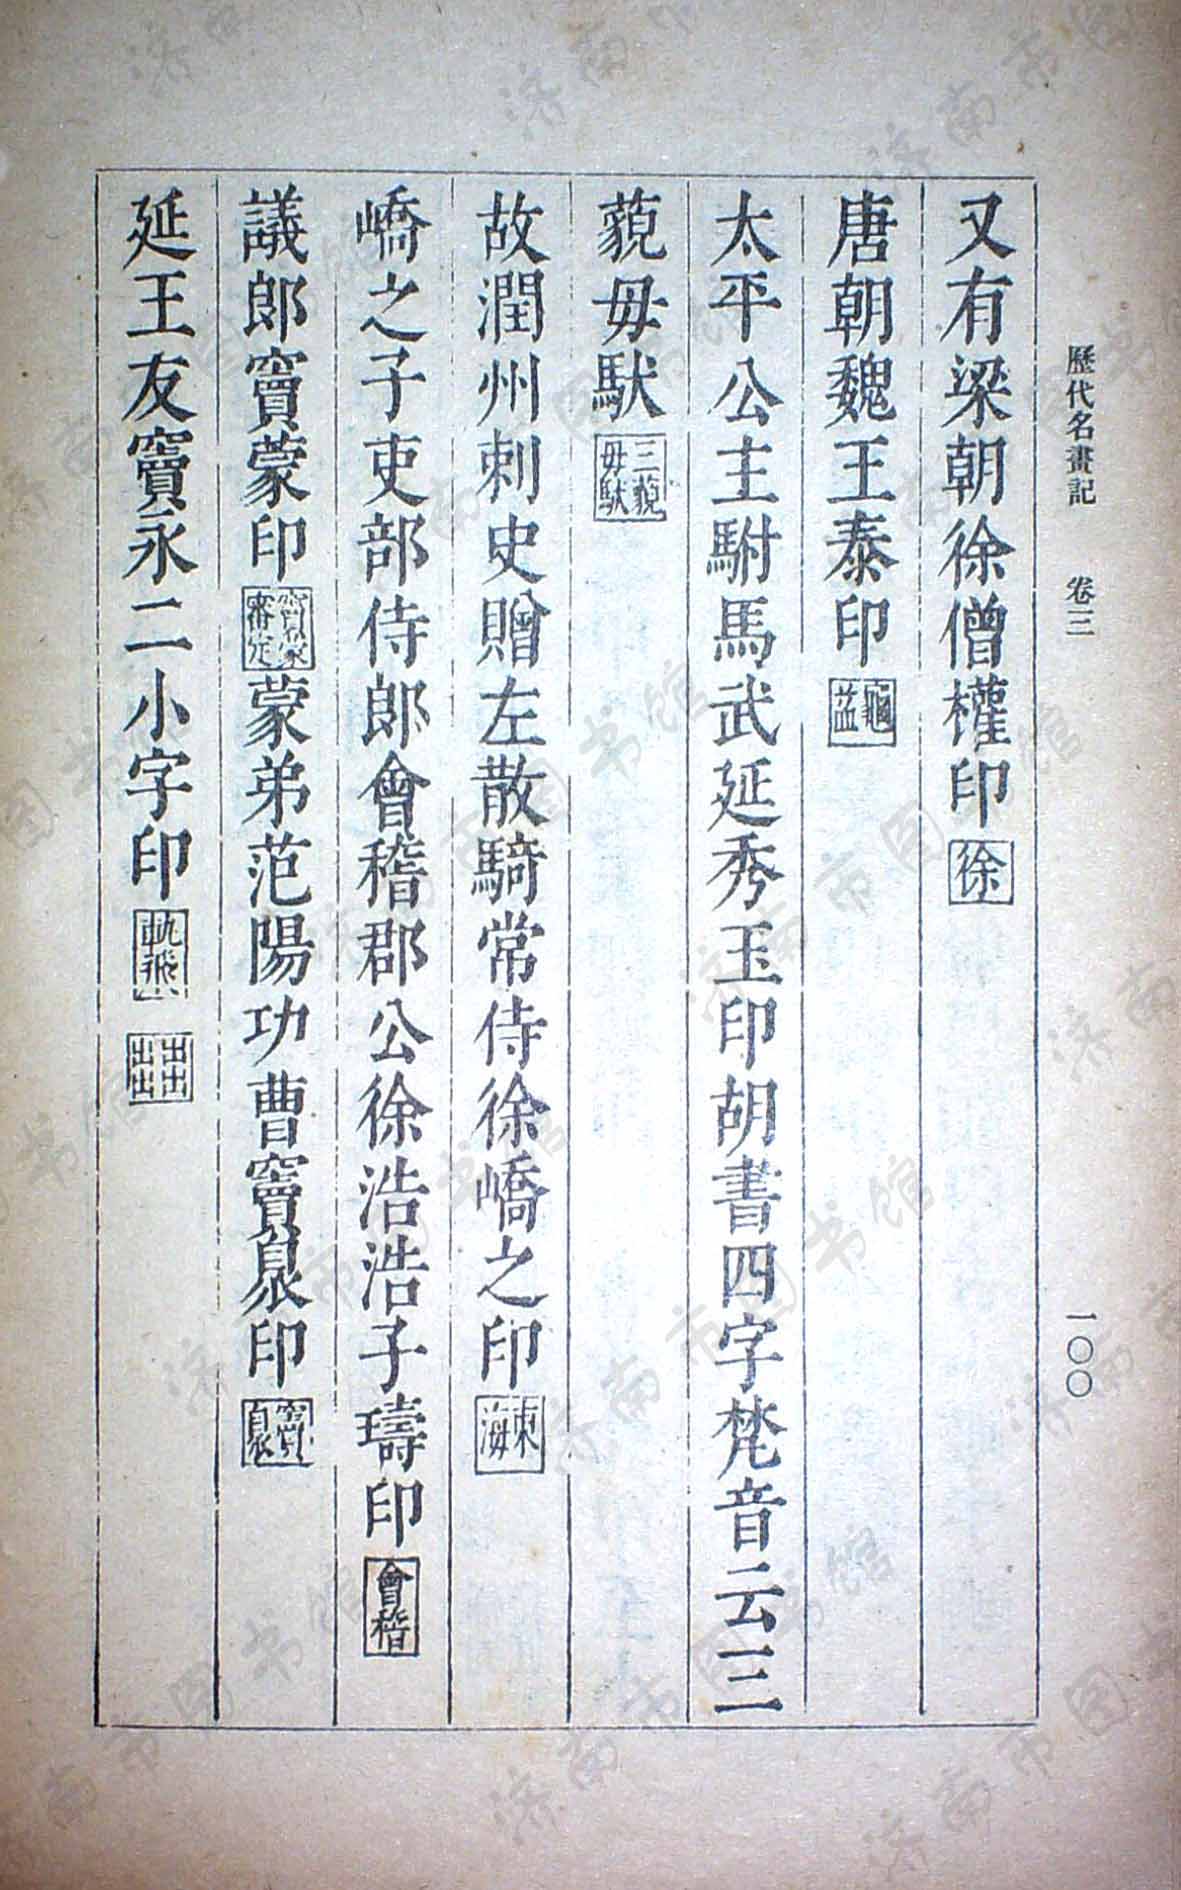 歷代名畫記 卷三 一〇〇
又有梁朝徐僧權印 徐
唐朝魏王泰印 龜益
太平公主駙馬武延秀玉印胡書四字梵音云三
藐毋馱 三藐毋馱
故潤州刺史贈左散騎常侍徐嶠之印 東海
嶠之子吏部侍郎會稽郡公徐浩浩子璹印 會稽
議郎竇蒙印 竇蒙審定 蒙弟范陽功曹竇臮印 竇臮
延王友竇永二小字印